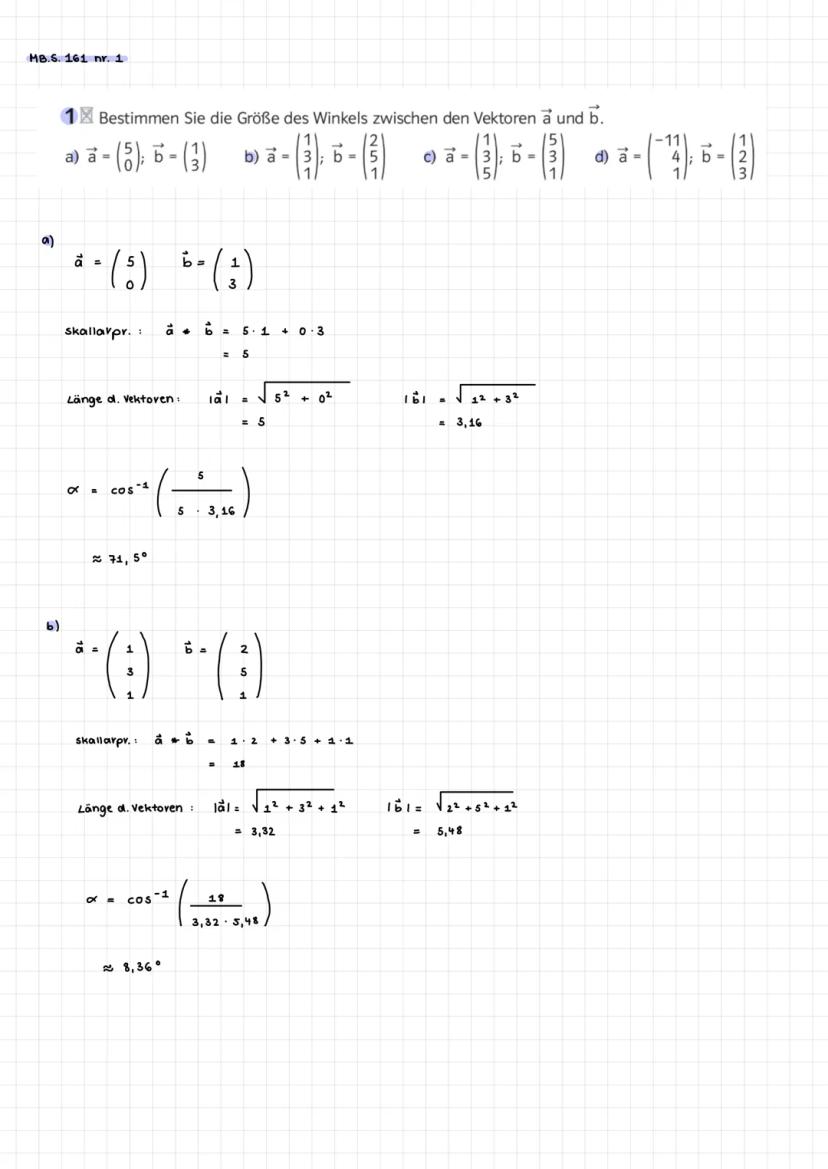 MB.S. 161 nr. 1
1 Bestimmen Sie die Größe des Winkels zwischen den Vektoren a⃗ und b⃗.
a) a⃗ = (5 0); b⃗ = (1 3) b) a⃗ = (1 3 1); b⃗ = (2 5 1) c) a⃗ = (1 3 5); b⃗ = (5 3 1) d) a⃗ = (-11 4 1); b⃗ = (1 2 3)
a)
a⃗ = (5 0) b⃗ = (1 3)
Skallarpr. : a⃗ * b⃗ = 5 · 1 + 0 · 3
= 5
Länge d. Vektoren : |a⃗| = √5² + 0² |b⃗| = √1² + 3²
= 5 = 3,16
α = cos⁻¹ (5 / 5 · 3,16)
≈ 71,5°
b)
a⃗ = (1 3 1) b⃗ = (2 5 1)
Skallarpr. : a⃗ * b⃗ = 1 · 2 + 3 · 5 + 1 · 1
= 18
Länge d. Vektoren : |a⃗| = √1² + 3² + 1² |b⃗| = √2² + 5² + 1²
= 3,32 = 5,48
α = cos⁻¹ (18 / 3,32 · 5,48)
≈ 8,36°